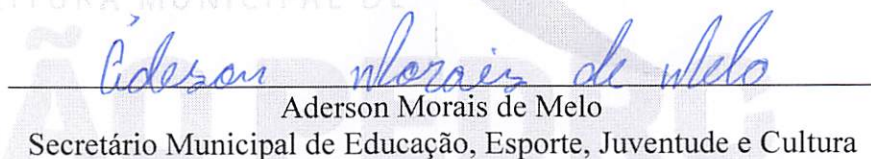 Aderson Morais de Melo
Aderson Morais de Melo
Secretário Municipal de Educação, Esporte, Juventude e Cultura